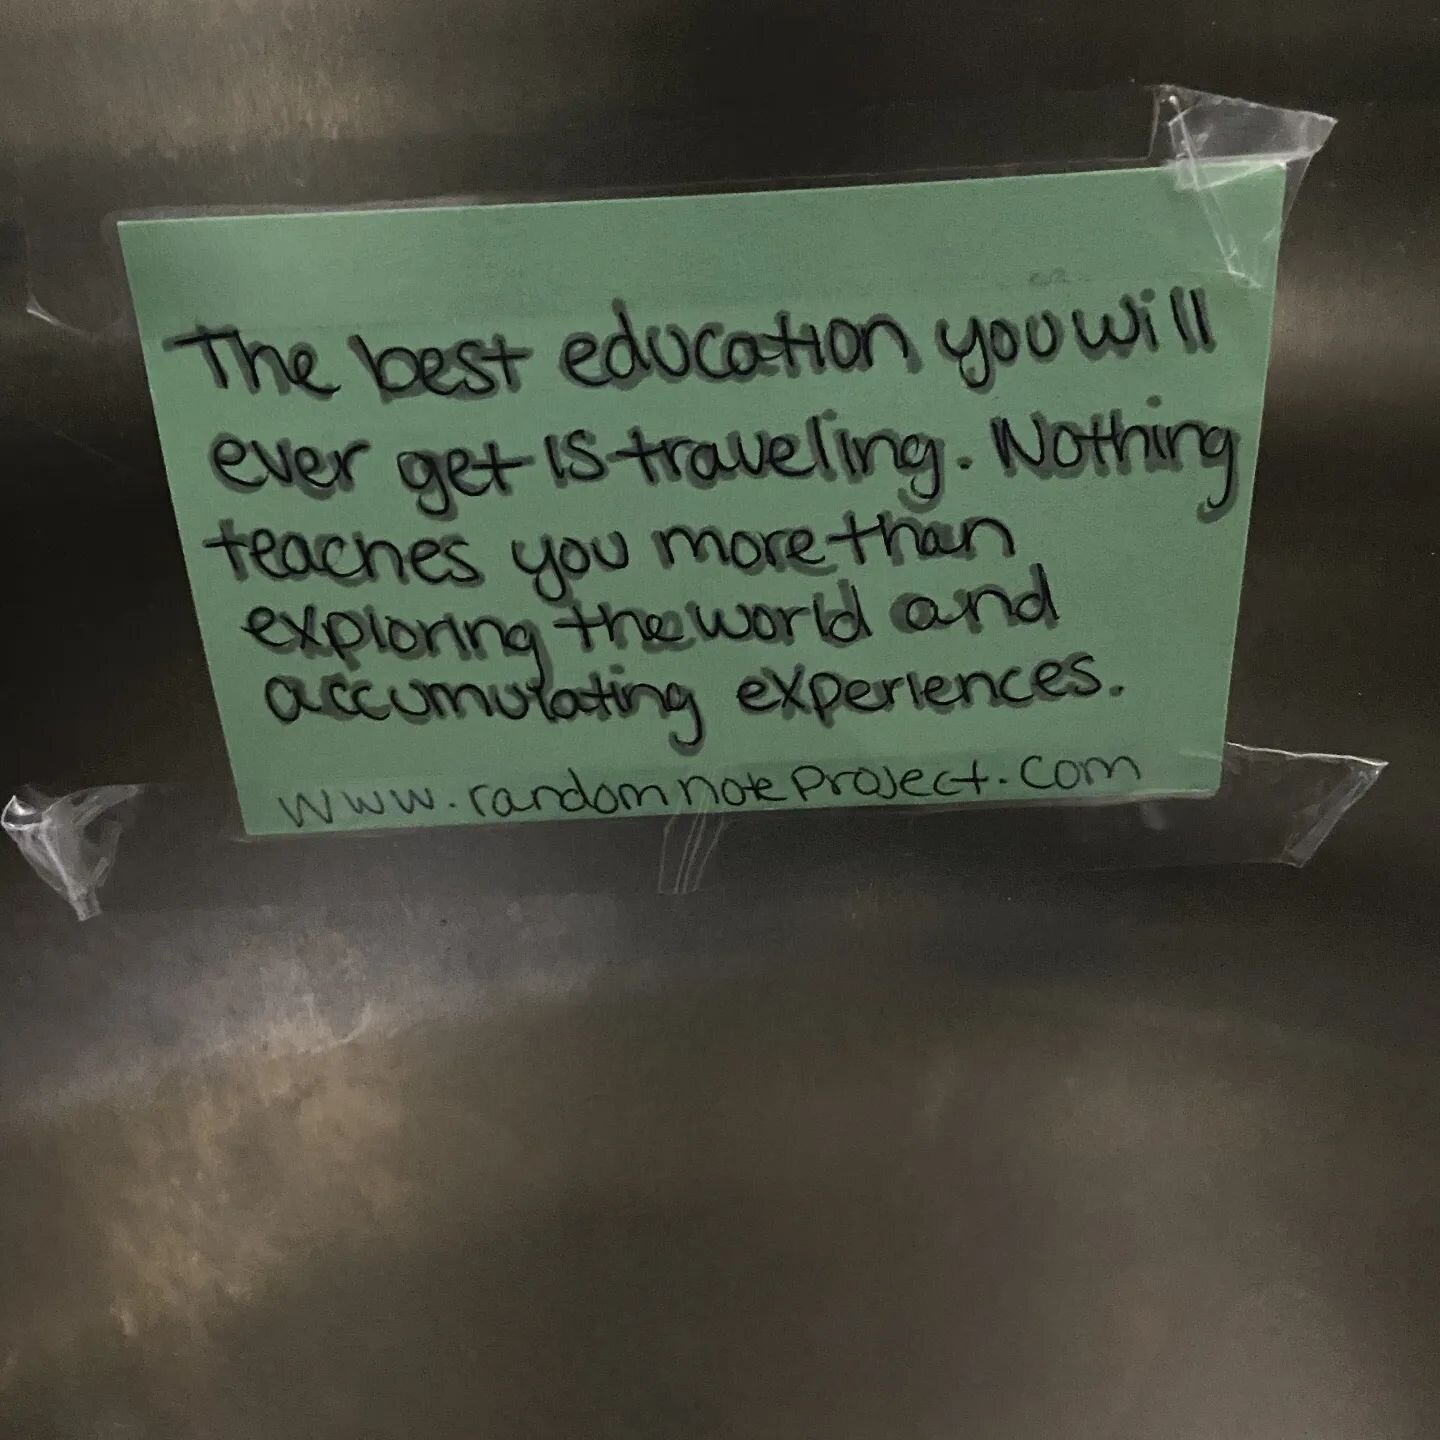 The best education you will
ever get is traveling. Nothing
teaches you more than
exploring the world and
accumulating experiences.
www.randomnoteproject.com